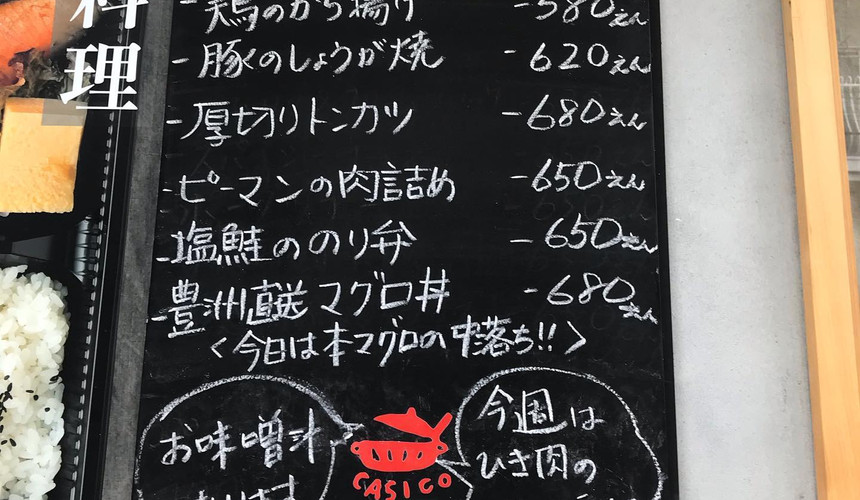 料
理
-鶏のから揚げ -580えん
-豚のしょうが焼 -620えん
-厚切りトンカツ -680えん
-ピーマンの肉詰め -650えん
-塩鮭ののり弁 -650えん
-豊洲直送マグロ丼 -680えん
<今日は本マグロの中落ち!!>
お味噌汁
あります
CASICO
今週は
ひき肉の